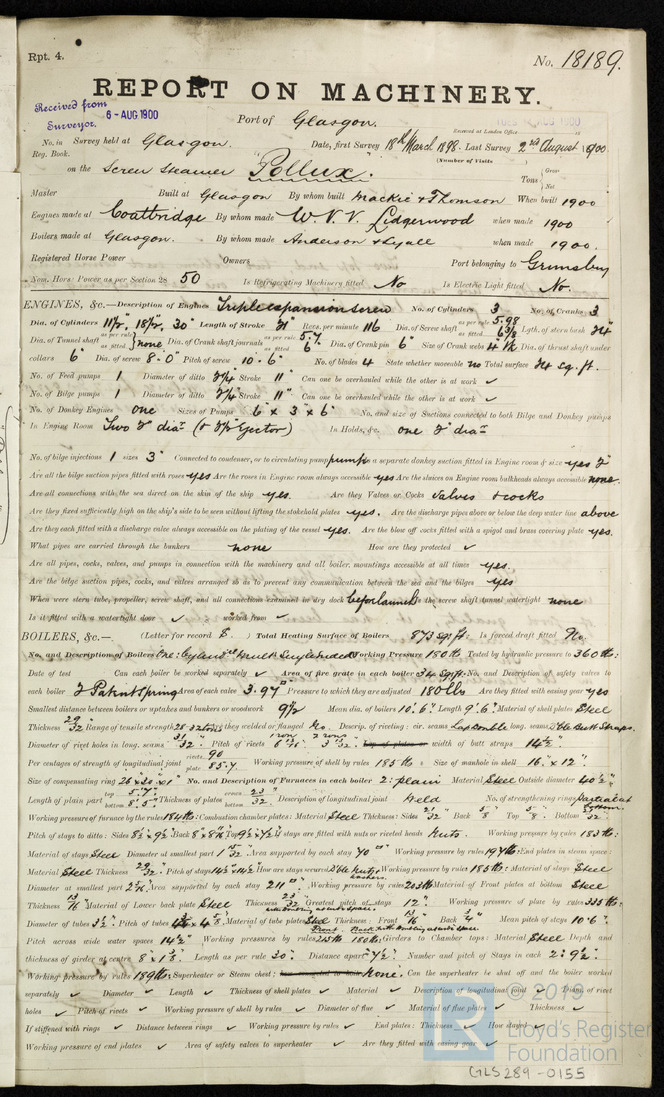 Rpt. 4.
No. 18189.
REPORT ON MACHINERY.
Received from Surveyor. 6-AUG 1900
Port of Glasgow.
Received at London Office
No. in Reg. Book. Survey held at Glasgow. Date, first Survey 18th March 1898. Last Survey 2nd August 1900
(Number of Visits)
on the Screw Steamer "Pollux." Tons { Gross Net
Master Built at Glasgow By whom built Mackie & Thomson When built 1900
Engines made at Coatbridge By whom made W. V. V. Lidgerwood when made 1900
Boilers made at Glasgow. By whom made Anderson & Lyall when made 1900.
Registered Horse Power Owners Port belonging to Grimsby
Nom. Horse Power as per Section 28 50 Is Refrigerating Machinery fitted No Is Electric Light fitted No.
ENGINES, &c.—Description of Engines Triple expansion screw No. of Cylinders 3 No. of Cranks 3
Dia. of Cylinders 11½", 18½", 30" Length of Stroke 21" Revs. per minute 116 Dia. of Screw shaft as per rule 5.98 as fitted 6⅜ Lgth. of stern bush 24"
Dia. of Tunnel shaft as per rule as fitted } none Dia. of Crank shaft journals as per rule 5.7 as fitted 6" Dia. of Crank pin 6" Size of Crank webs Dia. of thrust shaft under
collars 6" Dia. of screw 8'.0" Pitch of screw 10'.6" No. of blades 4 State whether moveable no Total surface 24 sq. ft.
No. of Feed pumps 1 Diameter of ditto 2¼" Stroke 11" Can one be overhauled while the other is at work ✓
No. of Bilge pumps 1 Diameter of ditto 2¼" Stroke 11" Can one be overhauled while the other is at work ✓
No. of Donkey Engines one Sizes of Pumps 6" x 3" x 6" No. and size of Suctions connected to both Bilge and Donkey pumps
In Engine Room Two 2" diar (& 2½" Ejector) In Holds, &c. one 2" diar
No. of bilge injections 1 sizes 3" Connected to condenser, or to circulating pump pump Is a separate donkey suction fitted in Engine room & size yes 2"
Are all the bilge suction pipes fitted with roses yes Are the roses in Engine room always accessible yes Are the sluices on Engine room bulkheads always accessible none.
Are all connections with the sea direct on the skin of the ship yes. Are they Valves or Cocks valves & cocks
Are they fixed sufficiently high on the ship's side to be seen without lifting the stokehold plates yes. Are the discharge pipes above or below the deep water line above
Are they each fitted with a discharge valve always accessible on the plating of the vessel yes. Are the blow off cocks fitted with a spigot and brass covering plate yes.
What pipes are carried through the bunkers none How are they protected ✓
Are all pipes, cocks, valves, and pumps in connection with the machinery and all boiler mountings accessible at all times yes.
Are the bilge suction pipes, cocks, and valves arranged so as to prevent any communication between the sea and the bilges yes
When were stern tube, propeller, screw shaft, and all connections examined in dry dock before launch Is the screw shaft tunnel watertight none
Is it fitted with a watertight door ✓ worked from ✓
BOILERS, &c.— (Letter for record S.) Total Heating Surface of Boilers 873 sq. ft. Is forced draft fitted No.
No. and Description of Boilers One: Cylindl Mult. Single ended Working Pressure 180 lb Tested by hydraulic pressure to 360 lbs:
Date of test Can each boiler be worked separately ✓ Area of fire grate in each boiler 34 sq. ft. No. and Description of safety valves to
each boiler 2 Patent Spring Area of each valve 3.97" Pressure to which they are adjusted 180 lbs Are they fitted with easing gear yes
Smallest distance between boilers or uptakes and bunkers or woodwork 9½ Mean dia. of boilers 10'.6" Length 9'.6" Material of shell plates Steel
Thickness 29/32 Range of tensile strength 28-32 tons Are they welded or flanged No. Descrip. of riveting: cir. seams Lap double long. seams Dble Butt Straps.
Diameter of rivet holes in long. seams 31/32" Pitch of rivets Lap of plates or width of butt straps 14½"
Per centages of strength of longitudinal joint rivets 90 plate 85.7 Working pressure of shell by rules 185 lbs Size of manhole in shell 16" x 12"
Size of compensating ring 26" x 30" x 1" No. and Description of Furnaces in each boiler 2: plain Material Steel Outside diameter 40½"
Length of plain part top 5'.7" bottom 8'.5" Thickness of plates crown 23/32 bottom Description of longitudinal joint Weld No. of strengthening rings Partial at bottom.
Working pressure of furnace by the rules 184 lbs: Combustion chamber plates: Material Steel Thickness: Sides 21/32 Back ⅝" Top ⅝" Bottom /32
Pitch of stays to ditto: Sides 8½ x 9½" Back Top If stays are fitted with nuts or riveted heads Nuts. Working pressure by rules 183 lb:
Material of stays Steel Diameter at smallest part Area supported by each stay 70 □" Working pressure by rules 197 lb: End plates in steam space:
Material Steel Thickness 29/32 Pitch of stays 14½" x 14½" How are stays secured Dble Nuts & washers. Working pressure by rules 185 lb: Material of stays Steel
Diameter at smallest part Area supported by each stay 211 □". Working pressure by rules 203 lb Material of Front plates at bottom Steel
Thickness 13/16" Material of Lower back plate Steel Thickness 23/32 Greatest pitch of stays 12". Working pressure of plate by rules 335 lb:
Diameter of tubes 3½" Pitch of tubes Material of tube plates Steel Thickness: Front 13/16 Back ¾" Mean pitch of stays 10".6".
Pitch across wide water spaces 14½" Working pressures by rules 215 lb 180 lb: Girders to Chamber tops: Material Steel Depth and
thickness of girder at centre Length as per rule 30" Distance apart 7½" Number and pitch of Stays in each 2: 9½".
Working pressure by rules 189 lb: Superheater or Steam chest; how connected to boiler None. Can the superheater be shut off and the boiler worked
separately ✓ Diameter ✓ Length ✓ Thickness of shell plates ✓ Material ✓ Description of longitudinal joint ✓ Diam. of rivet
holes ✓ Pitch of rivets ✓ Working pressure of shell by rules ✓ Diameter of flue ✓ Material of flue plates ✓ Thickness ✓
If stiffened with rings ✓ Distance between rings ✓ Working pressure by rules ✓ End plates: Thickness ✓ How stayed ✓
Working pressure of end plates ✓ Area of safety valves to superheater ✓ Are they fitted with easing gear ✓
© 2019
Lloyd's Register
Foundation
GLS289-0155